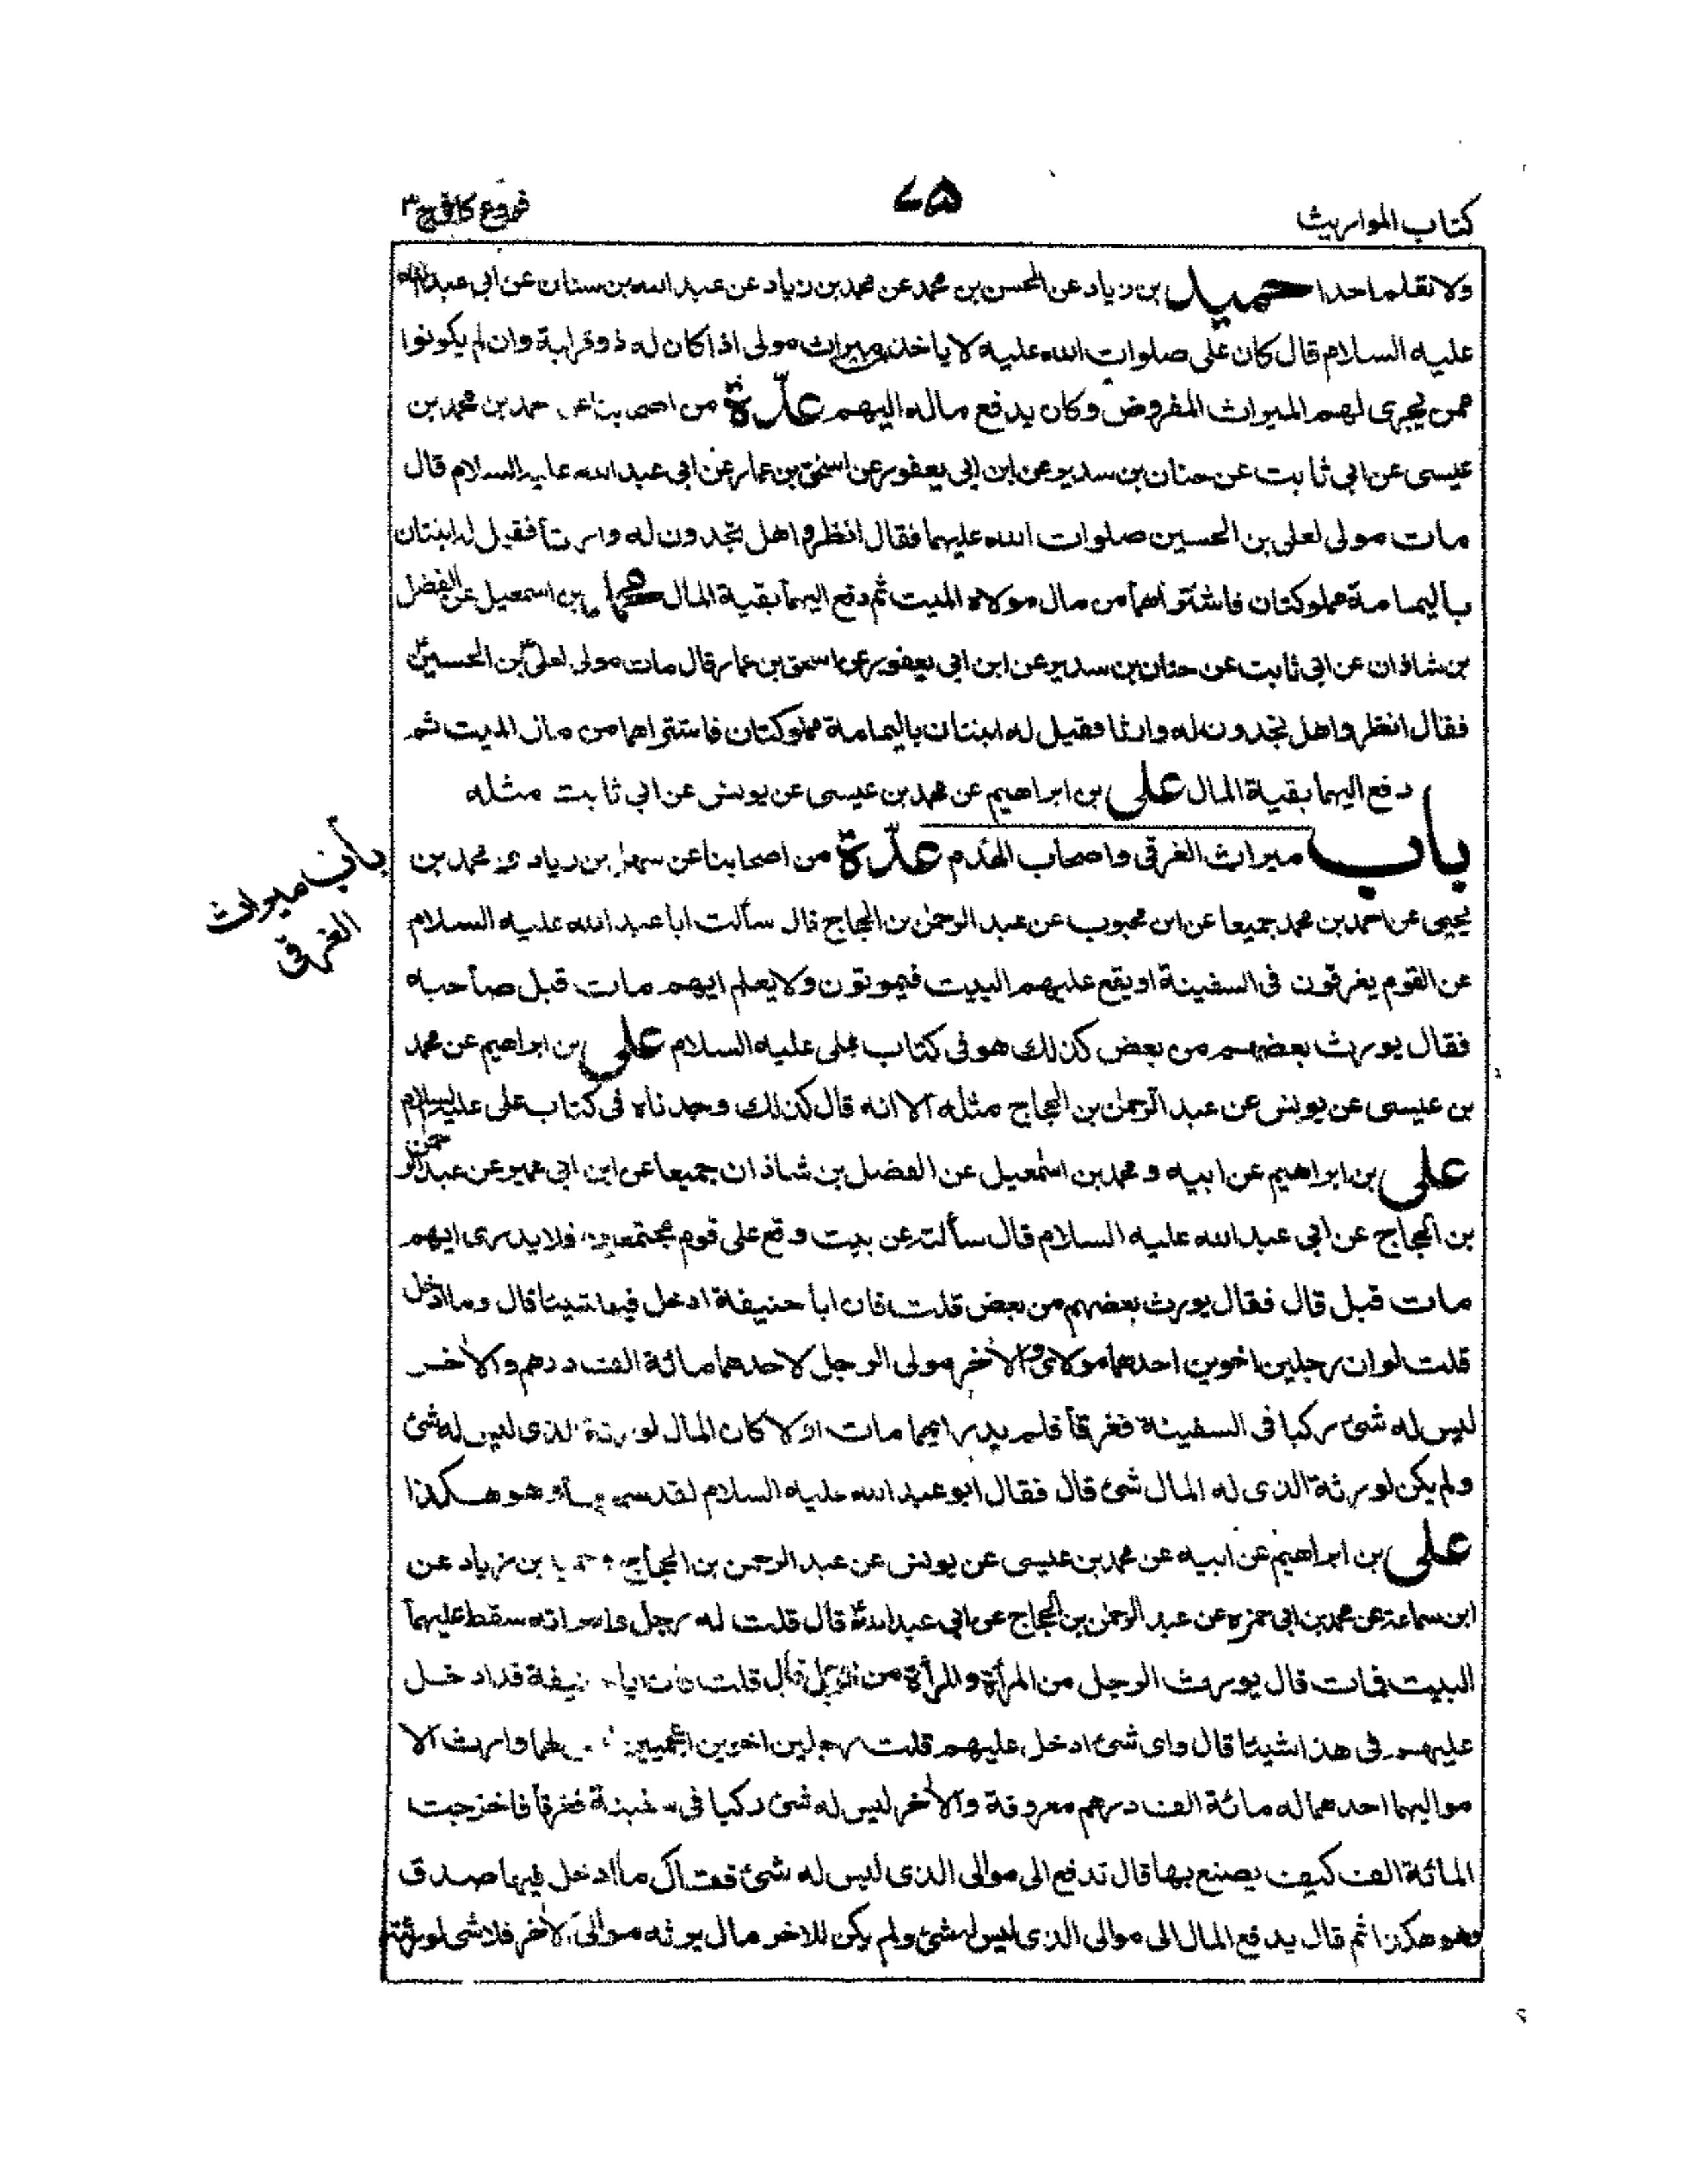 كتاب المواريث
٧٥
فروع كافى ج ٣
ولا نقله احدا حميل بن زياد عن الحسن بن محمد عن محمد بن زياد عن عبد الله بن سنان عن ابى عبد الله
عليه السلام قال كان على صلوات الله عليه لا ياخذ ميراث مولى اذا كان له ذو قرابة وان لم يكونوا
ممن يجرى لهم الميراث المفروض وكان يدفع ماله اليهم عدّة من اصحابنا عن احمد بن محمد بن
عيسى عن ابى ثابت عن حنان بن سدير عن ابن ابى يعفور عن اسحٰق بن عمار عن ابى عبد الله عليه السلام قال
مات مولى لعلى بن الحسين صلوات الله عليهما فقال انظروا هل تجدون له وارثا فقيل له ابنتان
باليمامة مملوكتان فاشتراهما من مال مولاه الميت ثم دفع اليهما بقية المال محمد بن اسمعيل عن الفضل
بن شاذان عن ابى ثابت عن حنان بن سدير عن ابن ابى يعفور عن اسحق بن عمار قال مات مولى لعلى بن الحسين
فقال انظروا هل تجدون له وارثا فقيل له ابنتان باليمامة مملوكتان فاشتراهما من مال الميت ثم
دفع اليهما بقية المال على بن ابراهيم عن محمد بن عيسى عن يونس عن ابى ثابت مثله
باب ميراث الغرقى واصحاب الهدم عدّة من اصحابنا عن سهل بن زياد و محمد بن
باب ميراث
الغرقى
يحيى عن احمد بن محمد جميعا عن ابن محبوب عن عبد الرحمٰن بن الحجاج قال سألت ابا عبد الله عليه السلام
عن القوم يغرقون فى السفينة او يقع عليهم البيت فيموتون ولا يعلم ايهم مات قبل صاحبه
فقال يورث بعضهم من بعض كذلك هو فى كتاب على عليه السلام على بن ابراهيم عن محمد
بن عيسى عن يونس عن عبد الرحمٰن بن الحجاج مثله الا انه قال كذلك وجدناه فى كتاب على عليه السلام
على بن ابراهيم عن ابيه و محمد بن اسمٰعيل عن الفضل بن شاذان جميعا عن ابن ابى عمير عن عبد الرحمن
بن الحجاج عن ابى عبد الله عليه السلام قال سألته عن بيت وقع على قوم مجتمعين فلا يدرى ايهم
مات قبل قال فقال يورث بعضهم من بعض قلت فان ابا حنيفة ادخل فيها شيئا قال وما ادخل
قلت لو ان رجلين اخوين احدهما مولاى والاٰخر مولى الرجل لاحدهما مائة الف درهم والاٰخر
ليس له شئ ركبا فى السفينة فغرقا فلم يدر ايهما مات اولا كان المال لورثة الذى ليس له شئ
ولم يكن لورثة الذى له المال شئ قال فقال ابو عبد الله عليه السلام لقد سمعها وهو هكذا
على بن ابراهيم عن ابيه عن محمد بن عيسى عن يونس عن عبد الرحمن بن الحجاج بن زياد عن
ابن سماعة عن محمد بن ابى حمزه عن عبد الرحمٰن بن الحجاج عن ابى عبد الله قال قلت له رجل وامراته سقط عليهما
البيت فمات قال يورث الرجل من المرأة والمرأة من الرجل قال قلت فان ابا حنيفة قد ادخل
عليهم فى هذا شيئا قال واى شئ ادخل عليهم قلت رجلين اخوين اعجميين ليس لهما وارث الا
مواليهما احدهما له مائة الف درهم معروفة والاٰخر ليس له شئ ركبا فى سفينة فغرقا فاخرجت
المائة الف كيف يصنع بها قال تدفع الى موالى الذى ليس له شئ فقال ما ادخل فيها صدق
وهو هكذا ثم قال يدفع المال الى موالى الذى ليس له شئ ولم يكن للاخر مال يرثه موالى الاٰخر فلا شى لورثته